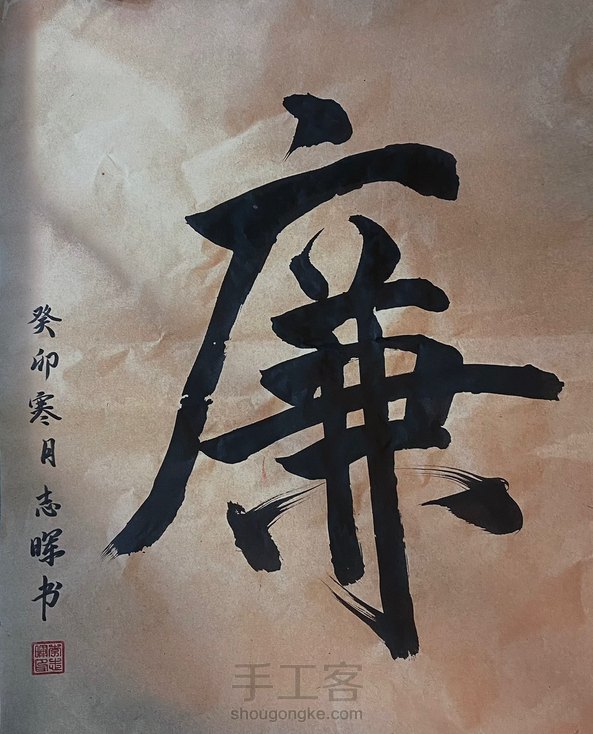 廉
癸卯寒月志晖书
手工客
shougongke.com